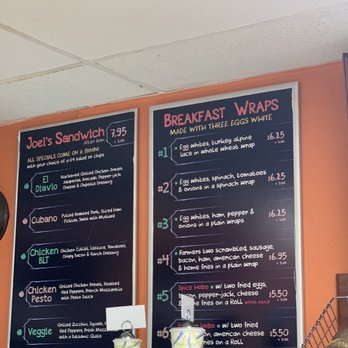 Joel's Sandwich 7.95
ALL SPECIALS COME ON A PANINI
with your choice of
salad or chips
El Diavlo
Blackened Grilled Chicken Breast,
Jalapenos, Avocado, Pepper-jack
Cheese & Chipotle Dressing
Cubano
Pulled Roasted Pork, Sliced Ham
Pickles, Swiss with Mustard
Chicken BLT
Chicken Cutlet, Lettuce, Tomatoes,
Crispy Bacon & Ranch Dressing
Chicken Pesto
Grilled Chicken Breast, Roasted
Red Peppers, Fresh Mozzarella
with Pesto Sauce
Veggie
Grilled Zucchini, Squash,
Red Peppers, Fresh
with a Balsamic Glaze
BREAKFAST WRAPS
MADE WITH THREE EGGS WHITE
#1 Egg whites, turkey, alpine
lace in whole wheat wrap
$6.25
#2 Egg whites, spinach, tomatoes
& onions in a spinach wrap
$6.25
#3 Egg whites, ham, pepper &
onions in a plain wrap
$6.25
#4 Farmers two scrambled, sausage,
bacon, ham, american cheese
& home fries in a plain wrap
$6.95
#5 Spicy Hobo w/ two fried eggs,
bacon, pepper-jack, cheese,
home fries on a Roll
$5.50
#6 Hobo w/ two fried
bacon, american cheese
fries on a Roll
$5.50